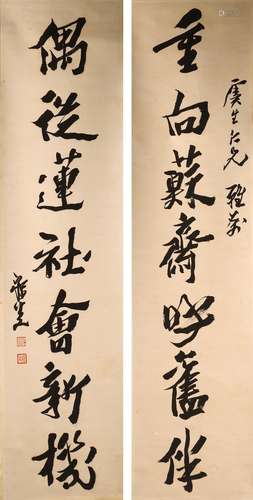 虞生仁兄 雅属
重向蘇齋呼舊侶
偶從蓮社會新機